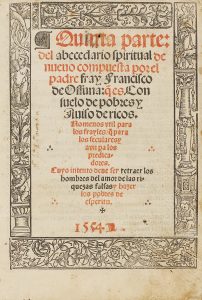 Quinta parte:
del abecedario spiritual de
nueuo compuesta por el
padre fray Francisco
de Ossuna: q̃ es, Con
suelo de pobres y
Auiso de ricos.
No menos vtil para
los frayles, q̃ para
los seculares y
avn pa los
predica
dores.
Cuyo intento deue ser retraer los
hombres del amor de las ri
quezas falsas y hazer
los pobres de
espiritu.
1554